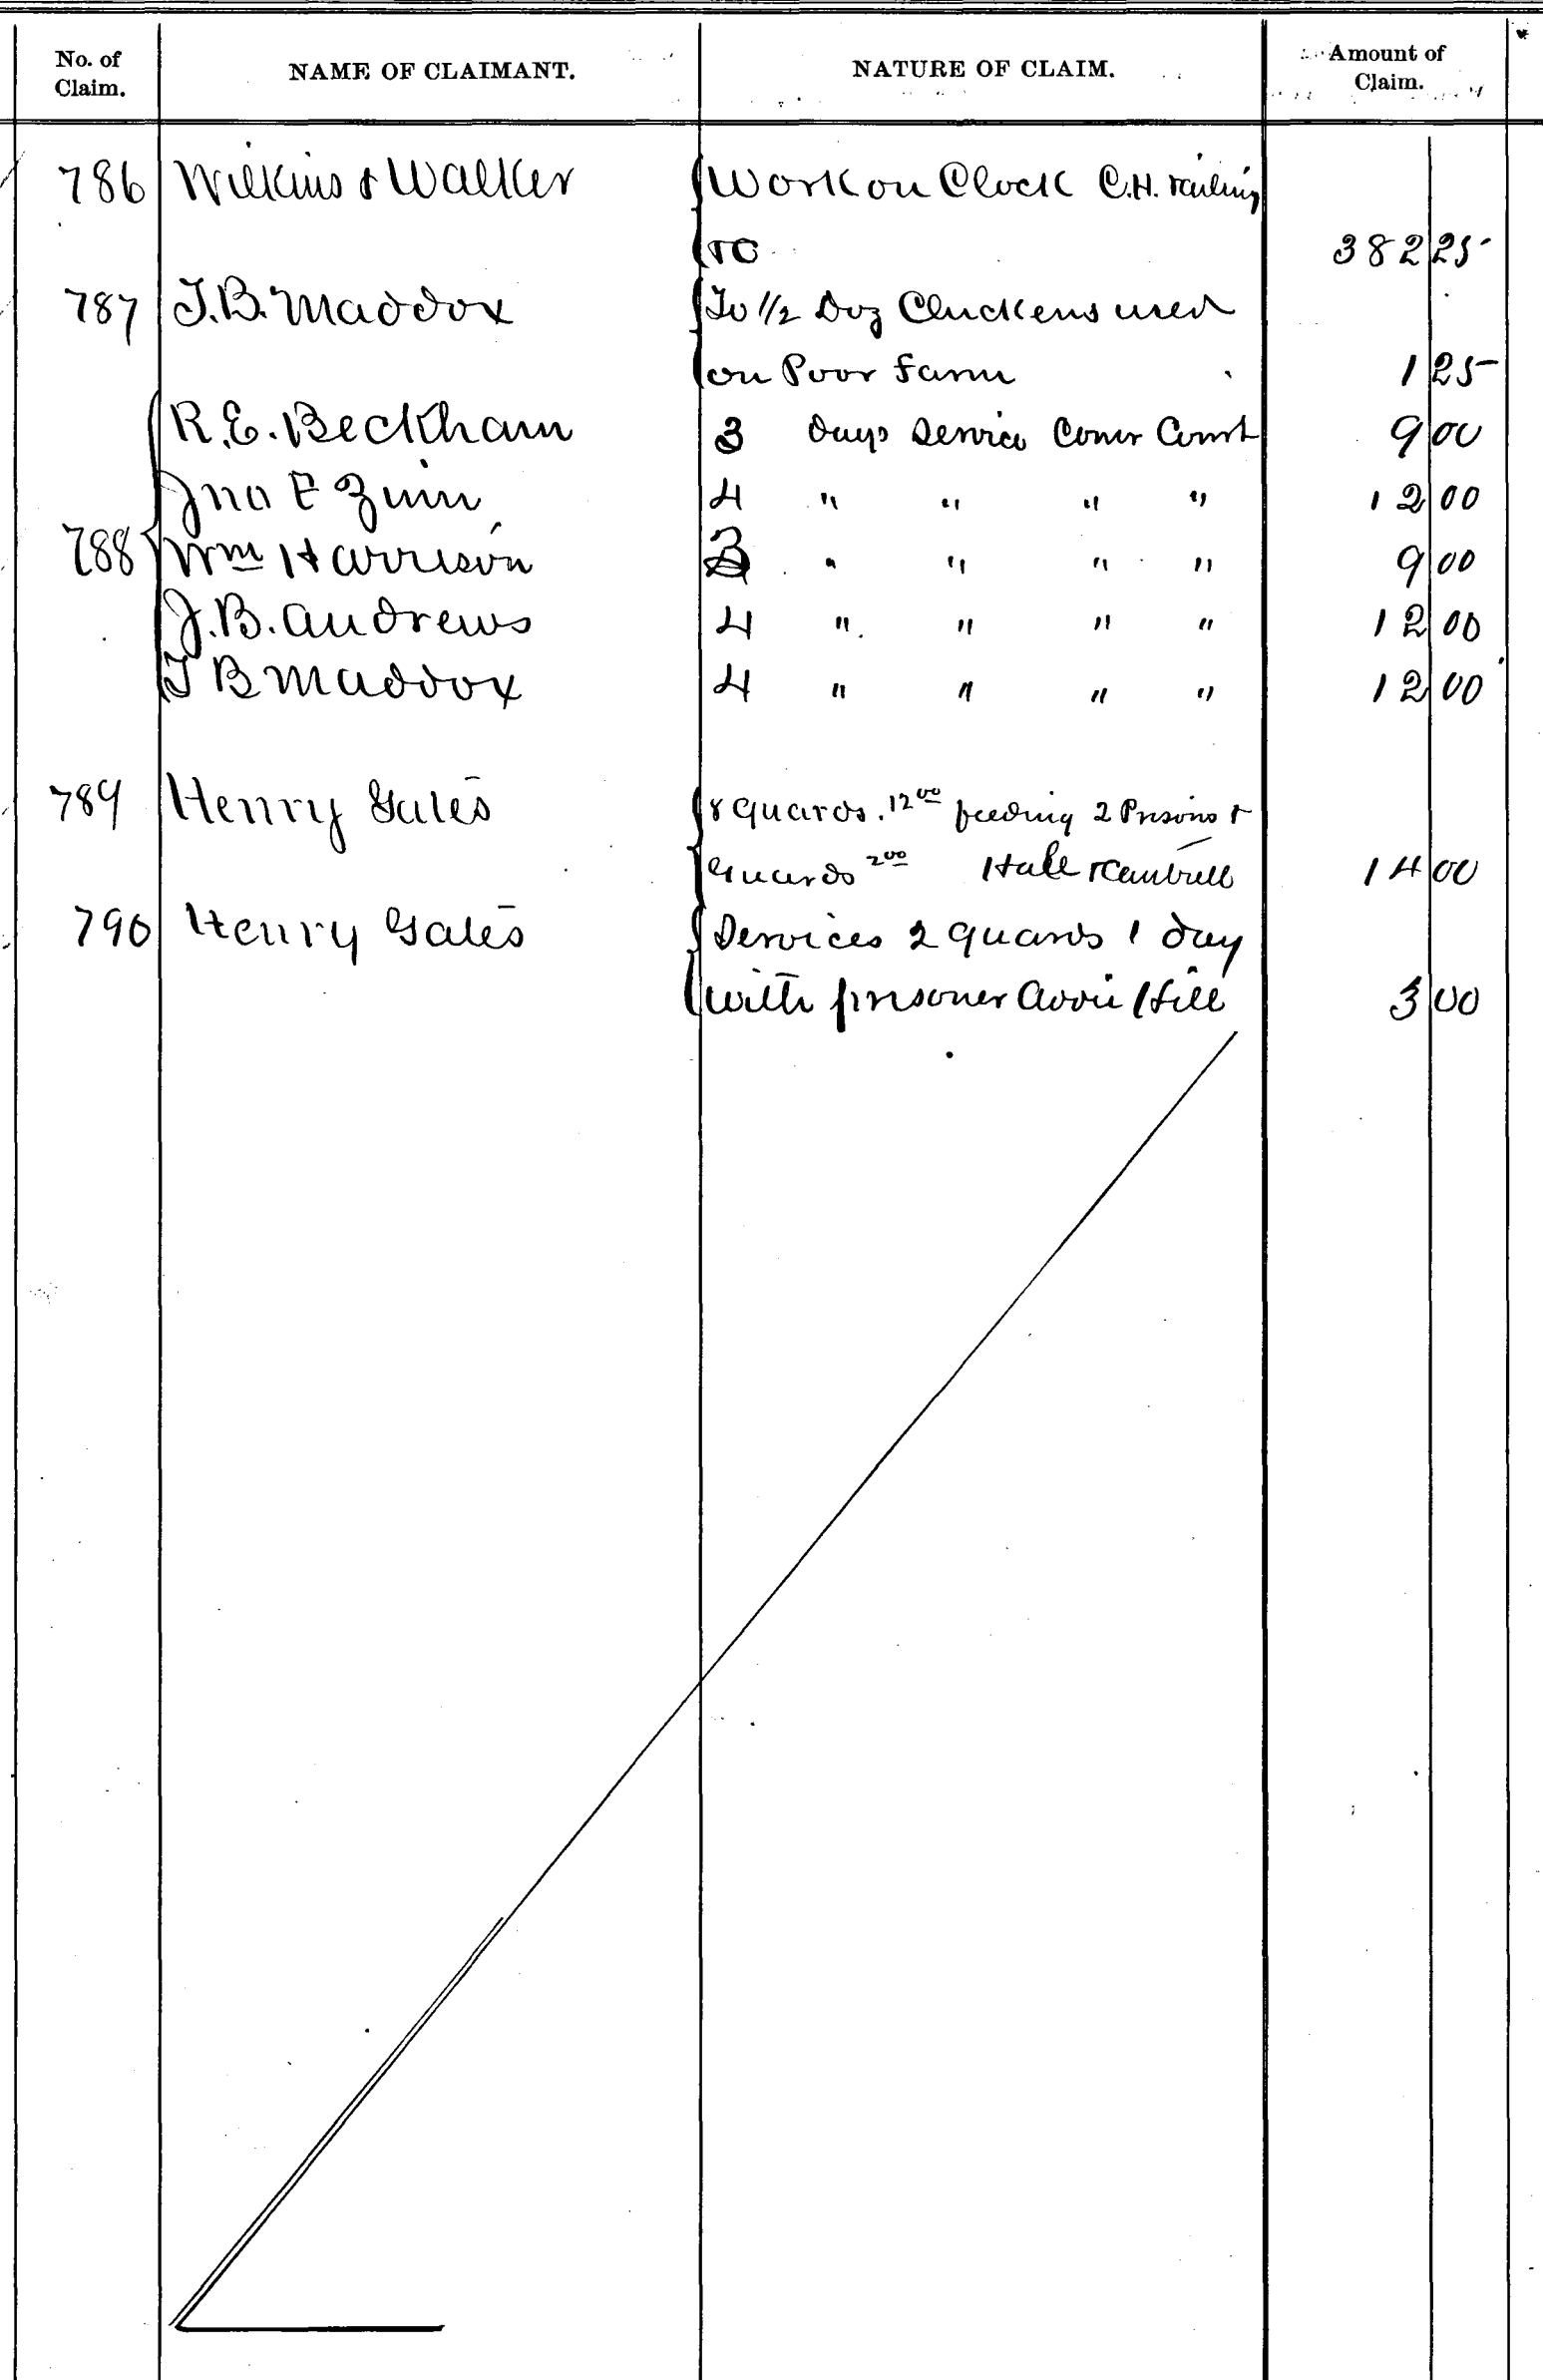 No. of Claim. NAME OF CLAIMANT. NATURE OF CLAIM. Amount of Claim.
786 Wilkins & Walker Work on Clock C.H. railing
&C 382 25
787 T.B. Maddox To 1/2 Doz Chickens used
on Poor Farm 1 25
R.E. Beckham 3 days Service Comr Court 9 00
Jno F Zinn 4 " " " " 12 00
788 Wm Harrison 3 " " " " 9 00
J.B. Andrews 4 " " " " 12 00
T B Maddox 4 " " " " 12 00
789 Henry Gates 8 guards. 12 00 feeding 2 Prisons &
Guards 2 00 Hall & Cantrell 14 00
790 Henry Gates Services 2 guards 1 day
with prisoner Hill 3 00